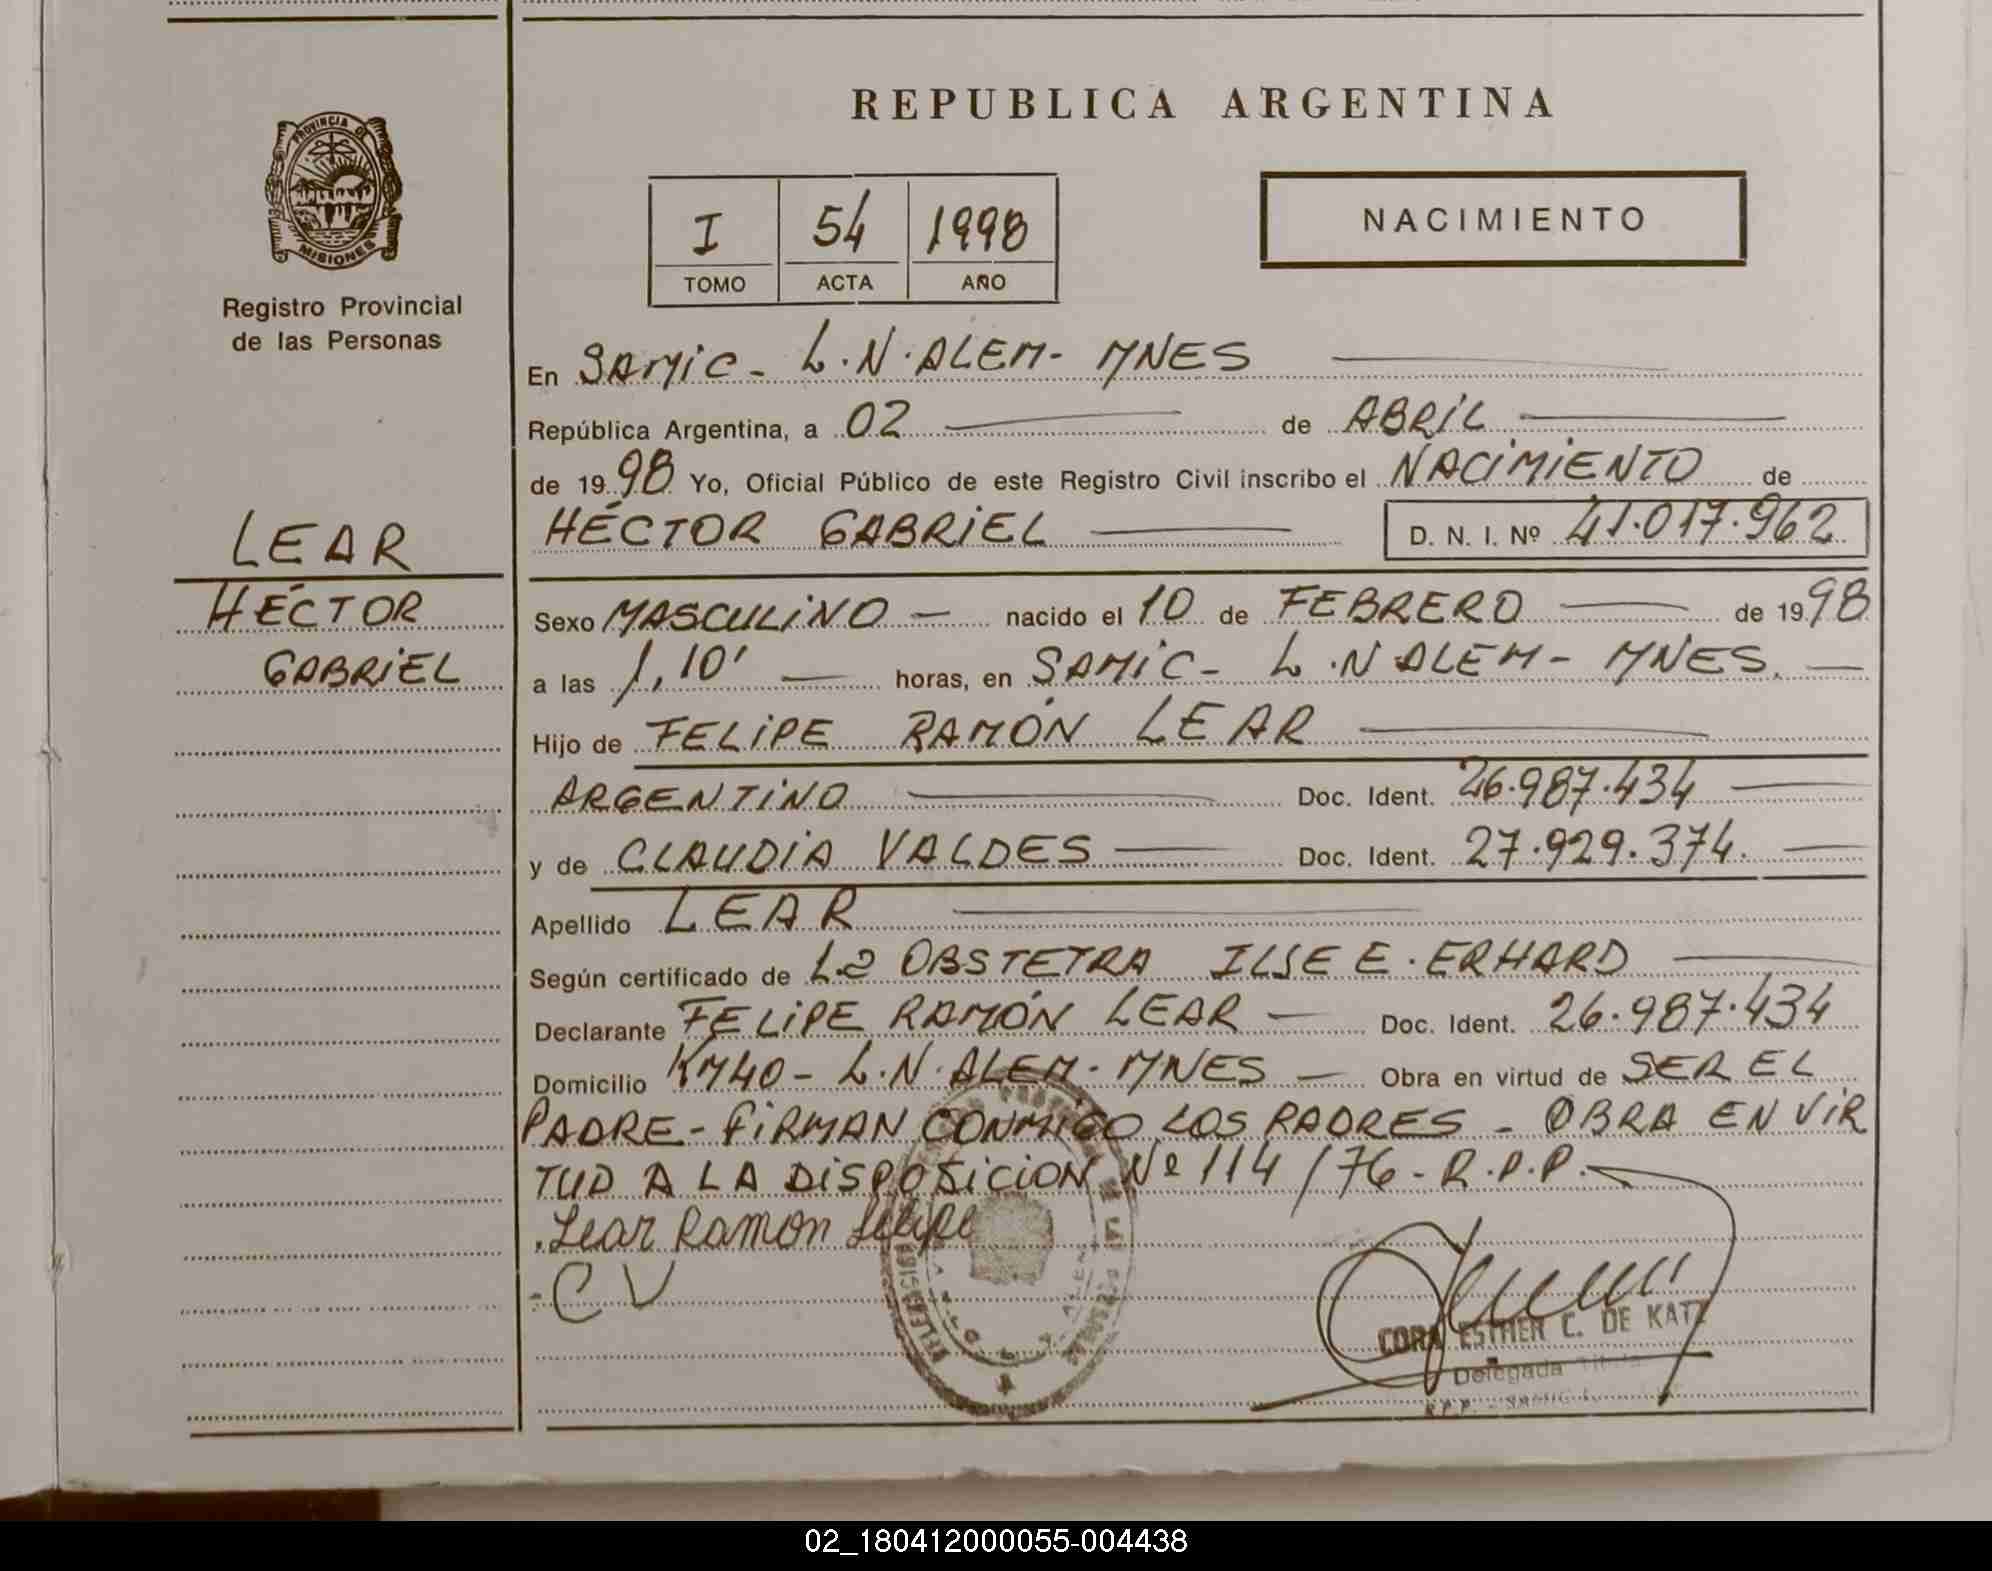 REPUBLICA ARGENTINA
PROVINCIA DE
MISIONES
Registro Provincial
de las Personas
I 54 1998
TOMO ACTA AÑO
NACIMIENTO
LEAR
HÉCTOR
GABRIEL
En SAMIC - L.N. ALEM - MNES
República Argentina, a 02 de ABRIL
de 1998 Yo, Oficial Público de este Registro Civil inscribo el NACIMIENTO de
HÉCTOR GABRIEL D. N. I. Nº 41.017.962
Sexo MASCULINO nacido el 10 de FEBRERO de 1998
a las 1,10' horas, en SAMIC - L.N ALEM - MNES.
Hijo de FELIPE RAMÓN LEAR
ARGENTINO Doc. Ident. 26.987.434
y de CLAUDIA VALDES Doc. Ident. 27.929.374.
Apellido LEAR
Según certificado de La OBSTETRA ILSE E. ERHARD
Declarante FELIPE RAMÓN LEAR Doc. Ident. 26.987.434
Domicilio KM40 - L.N. ALEM - MNES Obra en virtud de SER EL
PADRE - FIRMAN CONMIGO LOS PADRES - OBRA EN VIR
TUD A LA DISPOSICION Nº 114/76 - R.P.P.
Lear Ramon Felipe
C V
CORA ESTHER C. DE KATZ
Delegada
R.P.P. - SAMIC
02_180412000055-004438